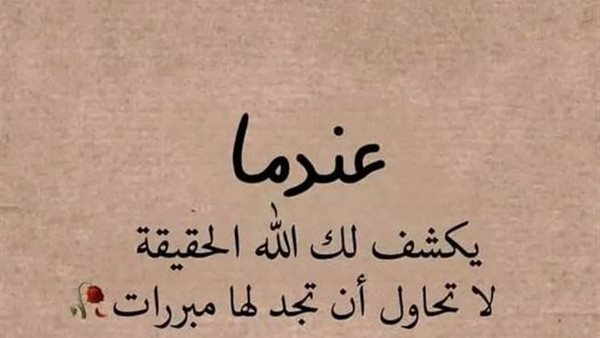 عندما
يكشف لك الله الحقيقة
لا تحاول أن تجد لها مبررات🥀